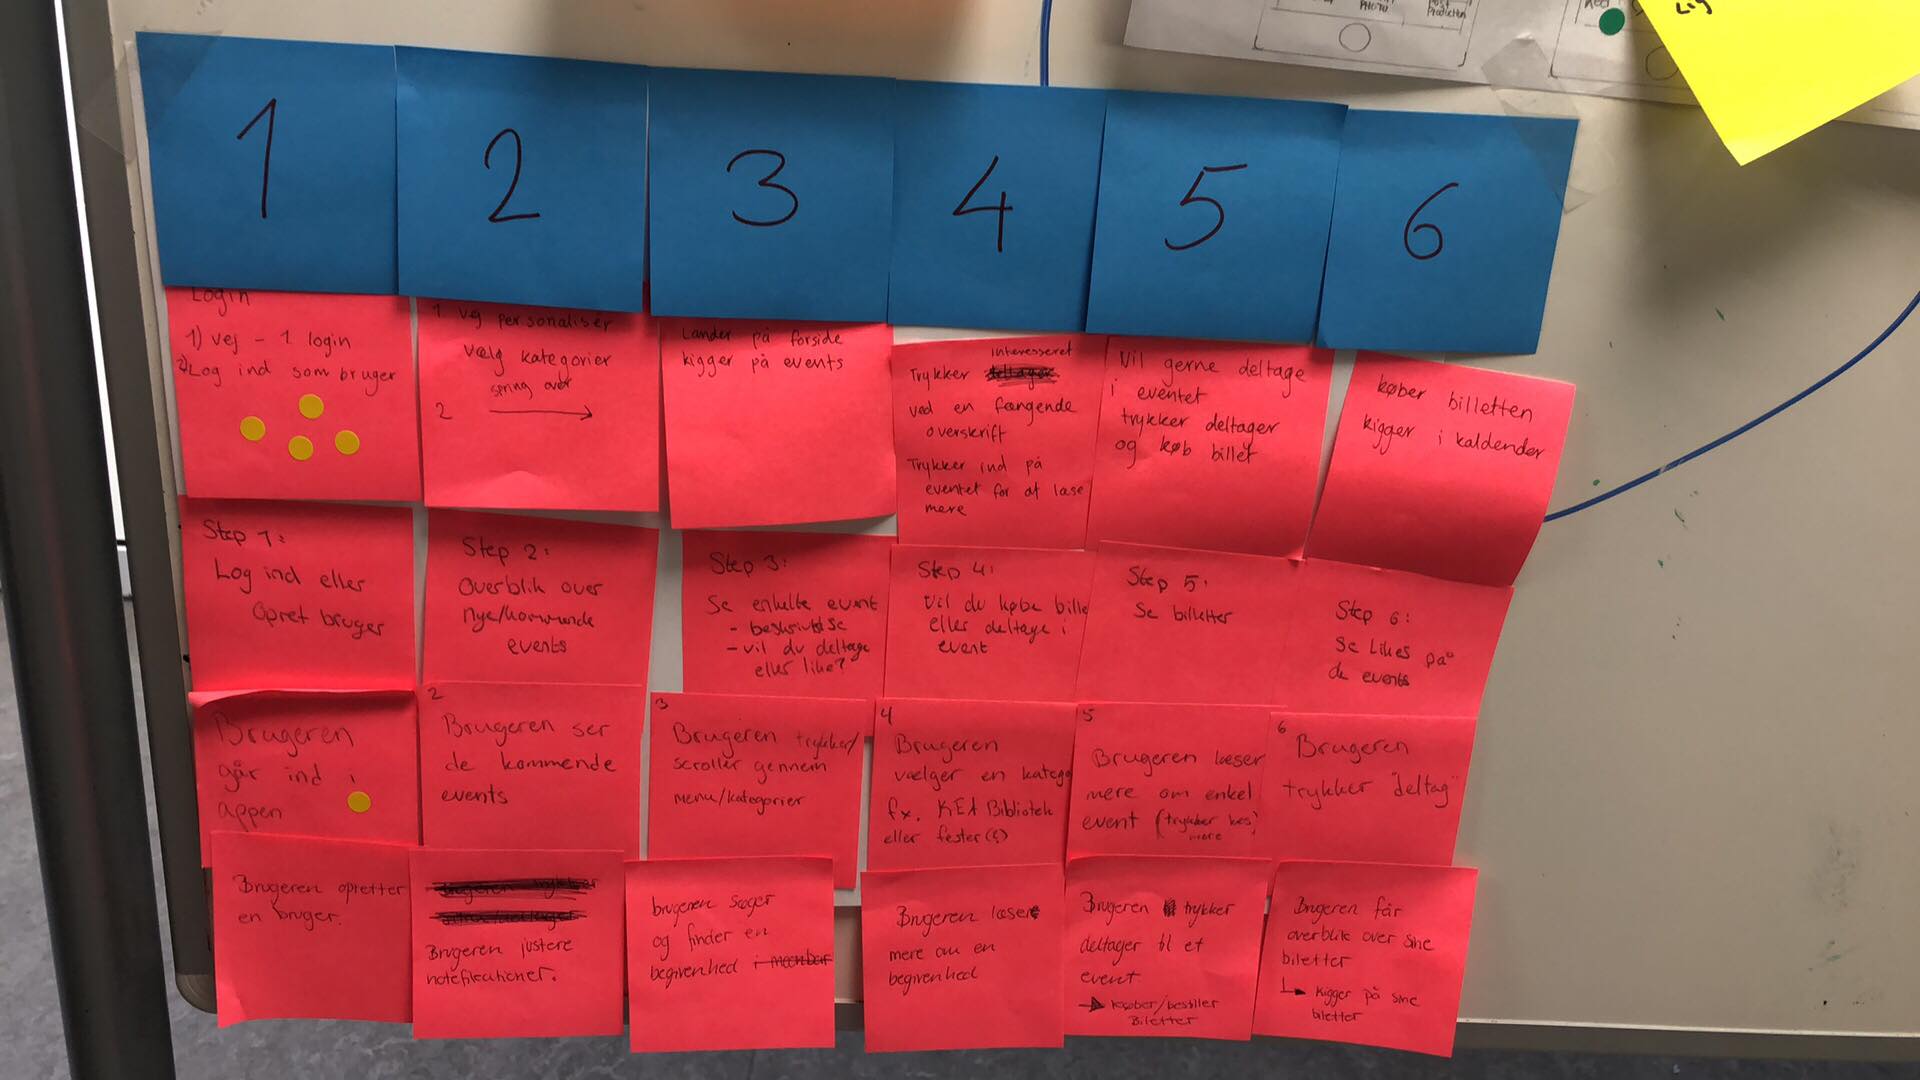 PHOTO
Post
Production
Lig
1
2
3
4
5
6
Login
1) vej - 1 login
2) Log ind som bruger
1. vej personaliser
vælg kategorier
spring over
2
Lander på forside
kigger på events
interesseret
Trykker deltager
ved en fængende
overskrift
Trykker ind på
eventet for at læse
mere
Vil gerne deltage
i eventet
trykker deltager
og køb billet
køber billetten
kigger i kaldender
Step 1:
Log ind eller
Opret bruger
Step 2:
Overblik over
nye/kommende
events
Step 3:
Se enkelte event
- beskrivelse
- vil du deltage
eller like?
Step 4:
Vil du købe bille
eller deltage i
event
Step 5:
Se billetter
Step 6:
Se likes på
de events
Brugeren
går ind i
appen
2
Brugeren ser
de kommende
events
3
Brugeren trykker/
scroller gennem
menu/kategorier
4
Brugeren
vælger en katego
fx. KEA Bibliotek
eller fester(?)
5
Brugeren læser
mere om enkel
event (trykker læs
mere
6
Brugeren
trykker "deltag"
Brugeren opretter
en bruger.
Brugeren justere
notefikationer.
brugeren søger
og finder en
begivenhed i menubar
Brugeren læsere
mere om en
begivenhed
Brugeren trykker
deltager til et
event.
→ køber/bestiller
Billetter
Brugeren får
overblik over sine
billetter
↳ kigger på sine
billetter